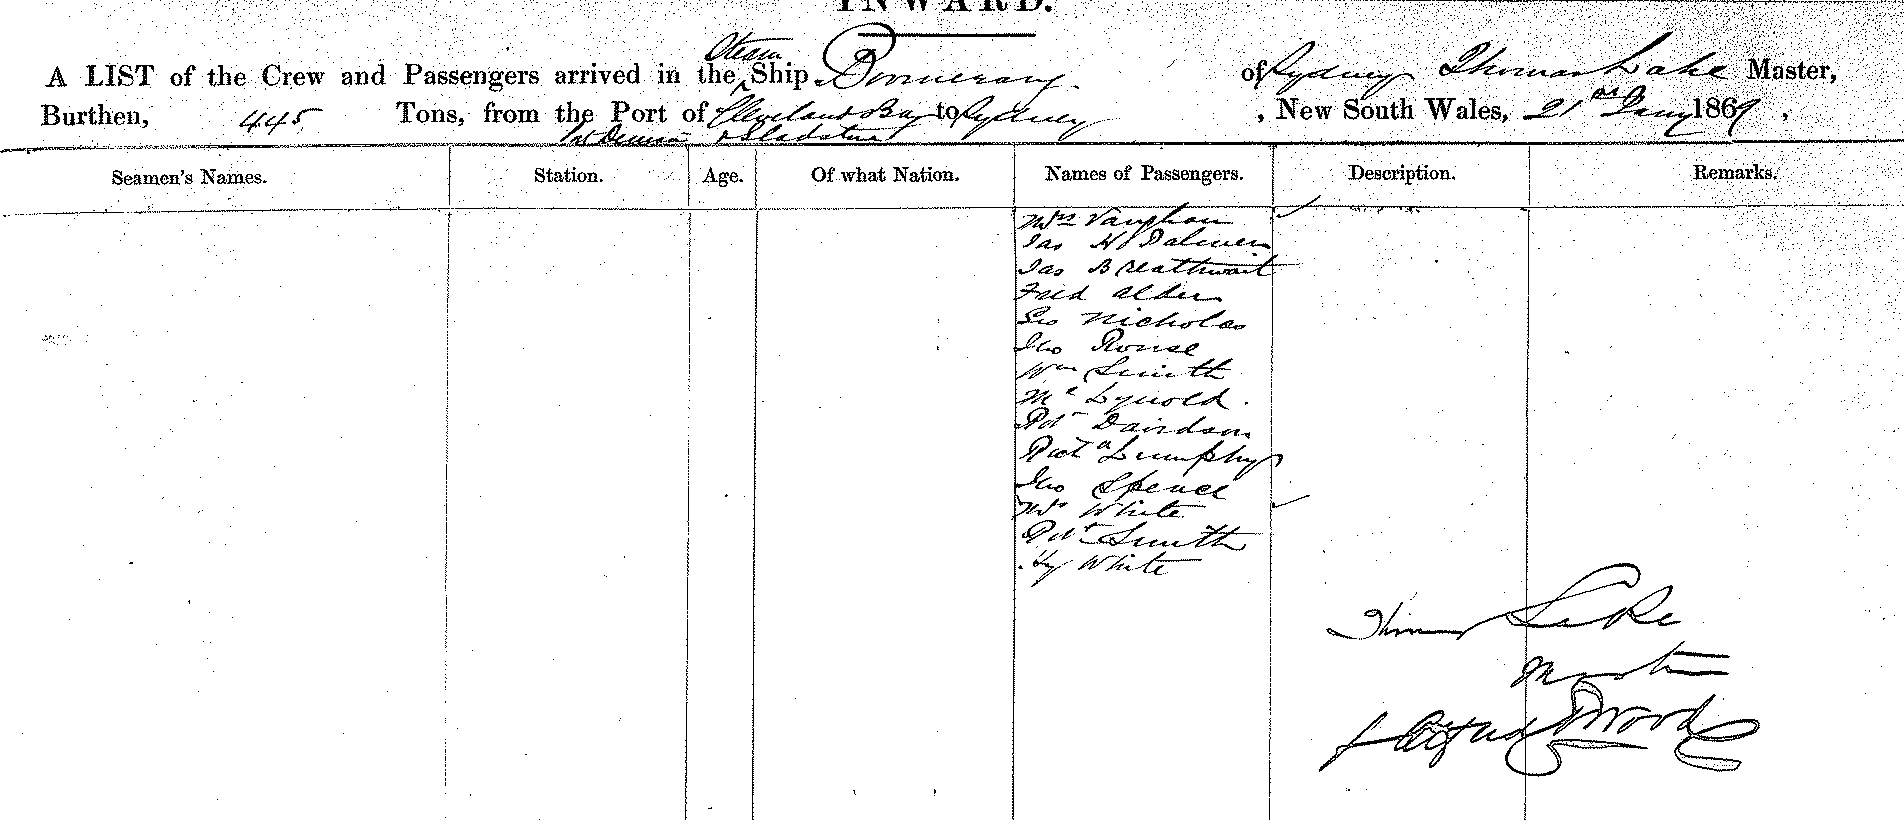 INWARD.
Steam
A LIST of the Crew and Passengers arrived in the Ship Boomerang of Sydney Thomas Lake Master,
Burthen, 445 Tons, from the Port of Cleveland Bay to Sydney , New South Wales, 21st Jany 1869 ,
Pt Denison & Gladstone
Seamen's Names. Station. Age. Of what Nation. Names of Passengers. Description. Remarks.
Mrs Vaughan
Jas H Palmer
Jas Breathwait
Fred Alder
Geo Nicholas
Jno Rouse
Wm Smith
Mr
Robt Davidson
Jno Spence
Mrs White
Robt Smith
Hy White
Thomas Lake
Master